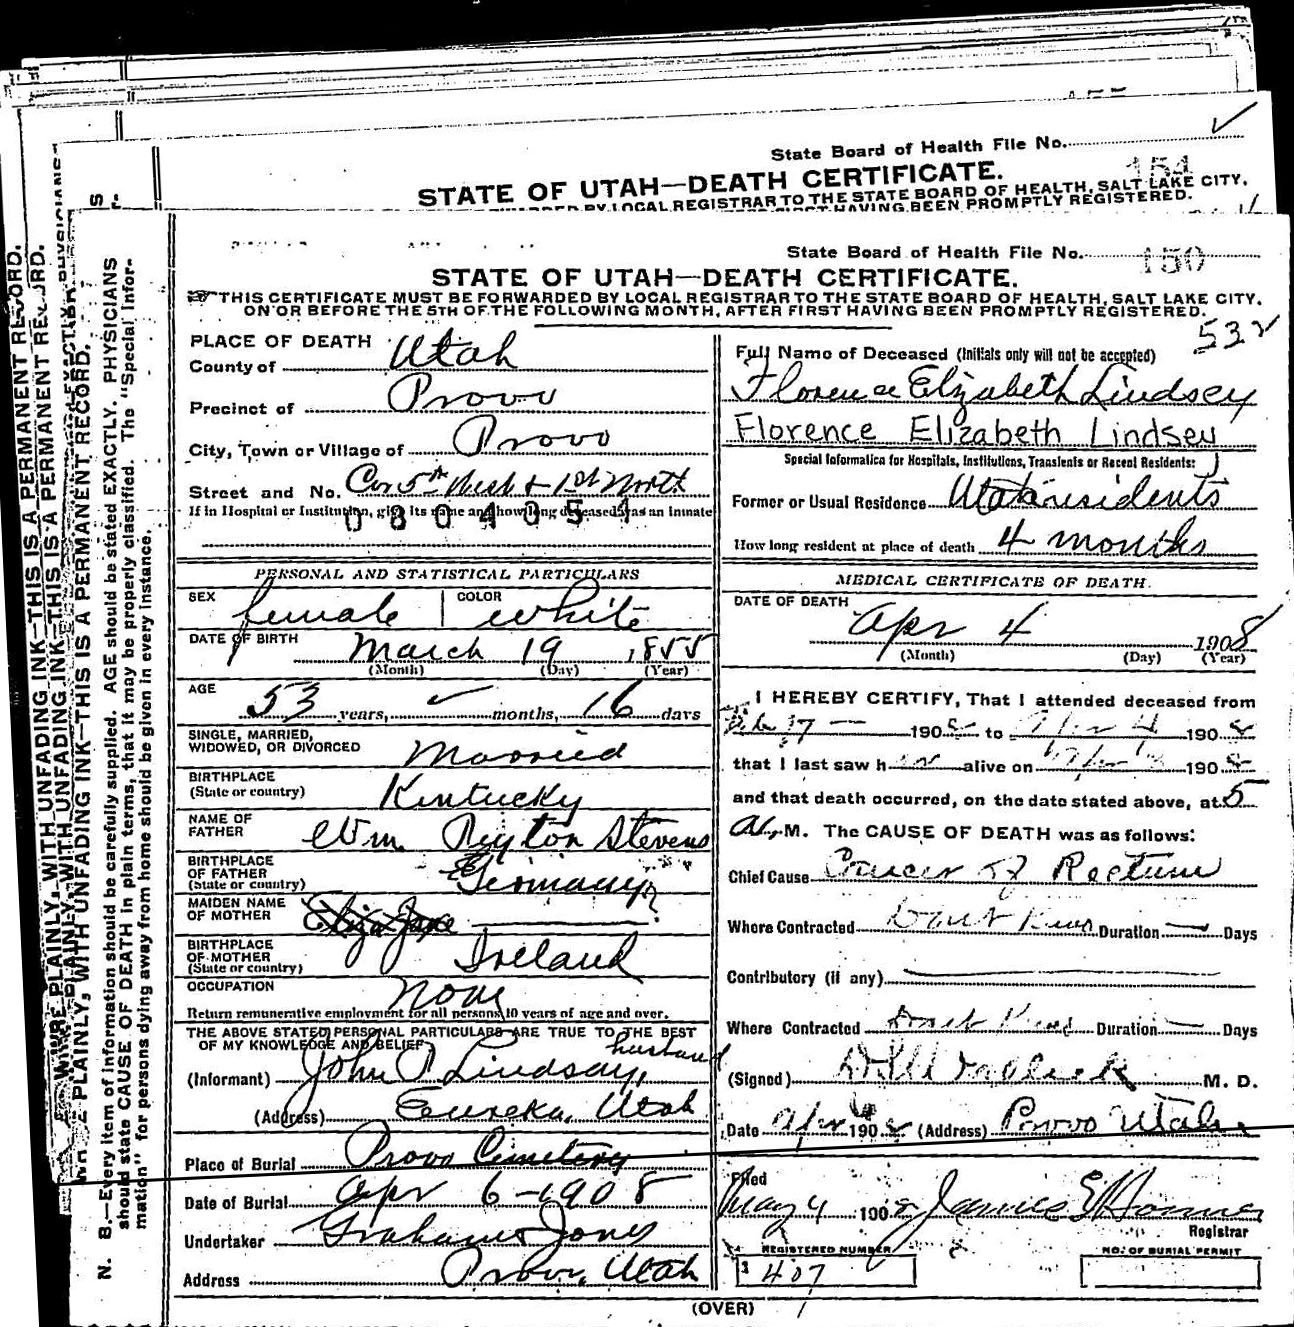 State Board of Health File No. 154
STATE OF UTAH—DEATH CERTIFICATE.
BY LOCAL REGISTRAR TO THE STATE BOARD OF HEALTH, SALT LAKE CITY,
HAVING BEEN PROMPTLY REGISTERED.
State Board of Health File No. 150
STATE OF UTAH—DEATH CERTIFICATE.
THIS CERTIFICATE MUST BE FORWARDED BY LOCAL REGISTRAR TO THE STATE BOARD OF HEALTH, SALT LAKE CITY,
ON OR BEFORE THE 5TH OF THE FOLLOWING MONTH, AFTER FIRST HAVING BEEN PROMPTLY REGISTERED.
532
PLACE OF DEATH
County of Utah
Precinct of Provo
City, Town or Village of Provo
Street and No. Cor 5th West & 1st North
If in Hospital or Institution, give its name and how long deceased was an inmate
0804051
PERSONAL AND STATISTICAL PARTICULARS
SEX female COLOR white
DATE OF BIRTH March 19 1855
(Month) (Day) (Year)
AGE 53 years, months, 16 days
SINGLE, MARRIED,
WIDOWED, OR DIVORCED Married
BIRTHPLACE
(State or country) Kentucky
NAME OF
FATHER Wm Peyton Stevens
BIRTHPLACE
OF FATHER
(State or country) Germany
MAIDEN NAME
OF MOTHER Eliza Jane
BIRTHPLACE
OF MOTHER
(State or country) Ireland
OCCUPATION None
Return remunerative employment for all persons 10 years of age and over.
THE ABOVE STATED PERSONAL PARTICULARS ARE TRUE TO THE BEST
OF MY KNOWLEDGE AND BELIEF
husband
(Informant) John P Lindsay,
(Address) Eureka, Utah
Place of Burial Provo Cemetery
Date of Burial Apr 6-1908
Undertaker Graham Jones
Address Provo, Utah
Full Name of Deceased (Initials only will not be accepted)
Florence Elizabeth Lindsey
Florence Elizabeth Lindsey
Special Information for Hospitals, Institutions, Transients or Recent Residents:
Former or Usual Residence Utah residents
How long resident at place of death 4 months
MEDICAL CERTIFICATE OF DEATH.
DATE OF DEATH
Apr 4 1908
(Month) (Day) (Year)
I HEREBY CERTIFY, That I attended deceased from
Feb 17 1908 to Apr 4 1908
that I last saw her alive on 1908
and that death occurred, on the date stated above, at 5
A. M. The CAUSE OF DEATH was as follows:
Chief Cause Cancer of Rectum
Where Contracted Dont Know Duration Days
Contributory (if any)
Where Contracted Dont Know Duration Days
(Signed) M. D.
Date Apr 1908 (Address) Provo Utah
Filed
May 4 1908 James E Homer
Registrar
REGISTERED NUMBER
407
NO. OF BURIAL PERMIT
(OVER)
WRITE PLAINLY, WITH UNFADING INK—THIS IS A PERMANENT RECORD.
N. B.—Every item of information should be carefully supplied. AGE should be stated EXACTLY. PHYSICIANS
should state CAUSE OF DEATH in plain terms, that it may be properly classified. The "Special Infor-
mation" for persons dying away from home should be given in every instance.